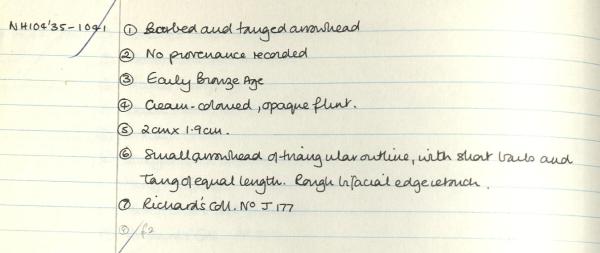 NH104'35-1041 ① Barbed and tanged arrowhead
② No provenance recorded
③ Early Bronze Age
④ Cream-coloured, opaque flint.
⑤ 2cm x 1.9cm.
⑥ Small arrowhead of triangular outline, with short barbs and
tang of equal length. Rough bifacial edge retouch.
⑦ Richard's Coll. No J 177
£2